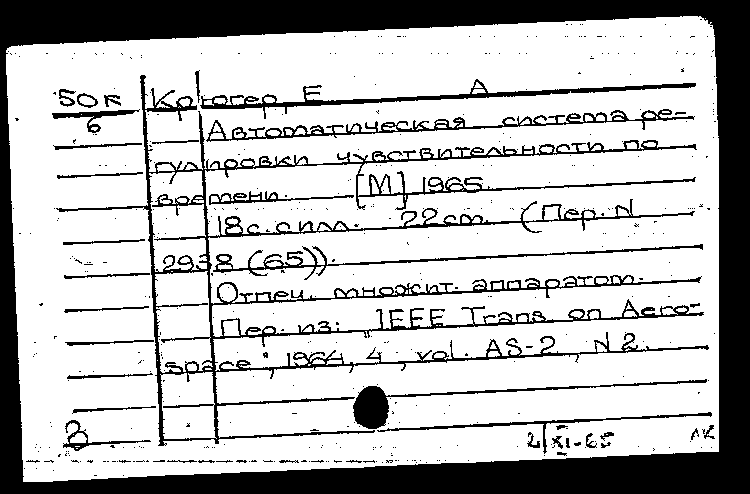 50к Крюгер, Е А
6
Автоматическая система ре-
гулировки чувствительности по
времени. [М] 1965
18с. с илл. 22cm. (Пер. N
2938 (65)).
Отпеч. множит. аппаратом.
Пер. из: „IEEE Trans on Aero-
space", 1964, 4, vol. AS-2, N 2.
2/XI-65 ЛК